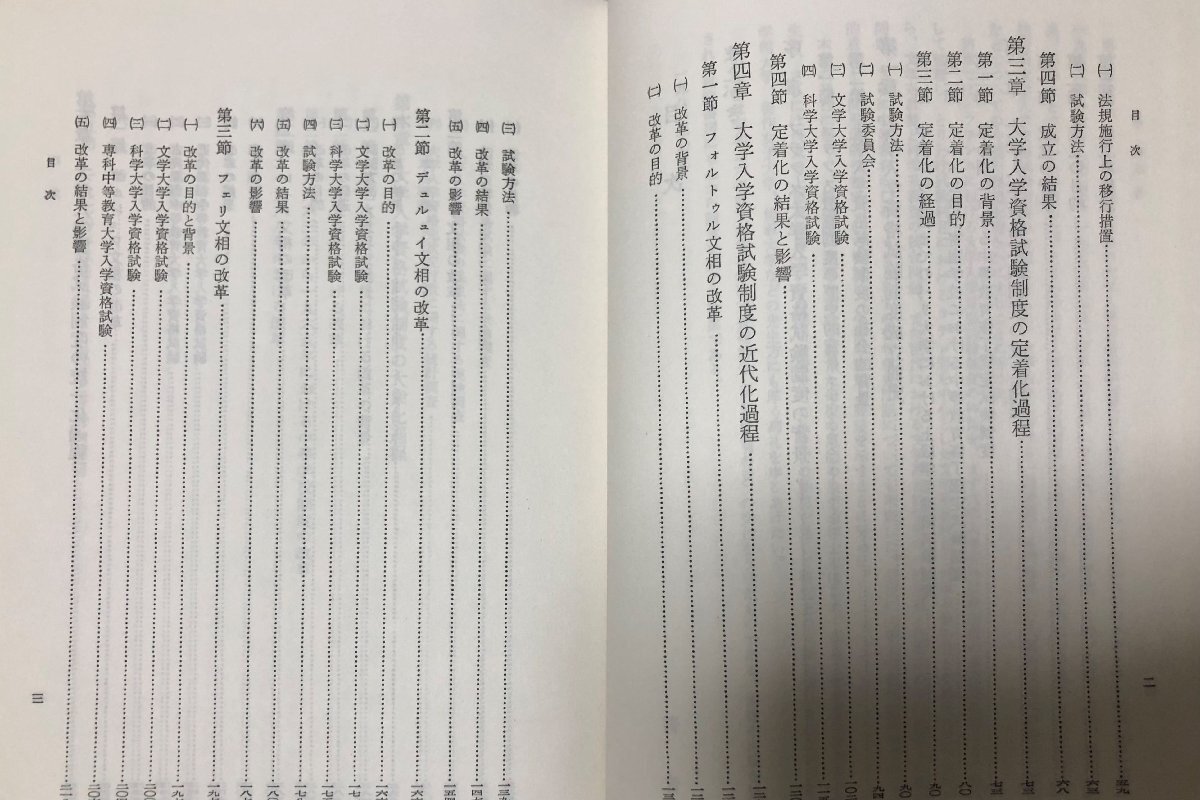 目次
㈠ 法規施行上の移行措置……五九
㈡ 試験方法……六三
第四節 成立の結果……六八
第三章 大学入学資格試験制度の定着化過程……七三
第一節 定着化の背景……七三
第二節 定着化の目的……八〇
第三節 定着化の経過……九〇
㈠ 試験方法……九〇
㈡ 試験委員会……九四
㈢ 文学大学入学資格試験……
㈣ 科学大学入学資格試験……
第四節 定着化の結果と影響……
第四章 大学入学資格試験制度の近代化過程……
第一節 フォルトゥル文相の改革……
㈠ 改革の背景……
㈡ 改革の目的……
二
㈢ 試験方法……
㈣ 改革の結果……
㈤ 改革の影響……
第二節 デュルュイ文相の改革……
㈠ 改革の目的……
㈡ 文学大学入学資格試験……
㈢ 科学大学入学資格試験……
㈣ 試験方法……
㈤ 改革の結果……
㈥ 改革の影響……
第三節 フェリ文相の改革……
㈠ 改革の目的と背景……
㈡ 文学大学入学資格試験……
㈢ 科学大学入学資格試験……
㈣ 専科中等教育大学入学資格試験……
㈤ 改革の結果と影響……
目次
三